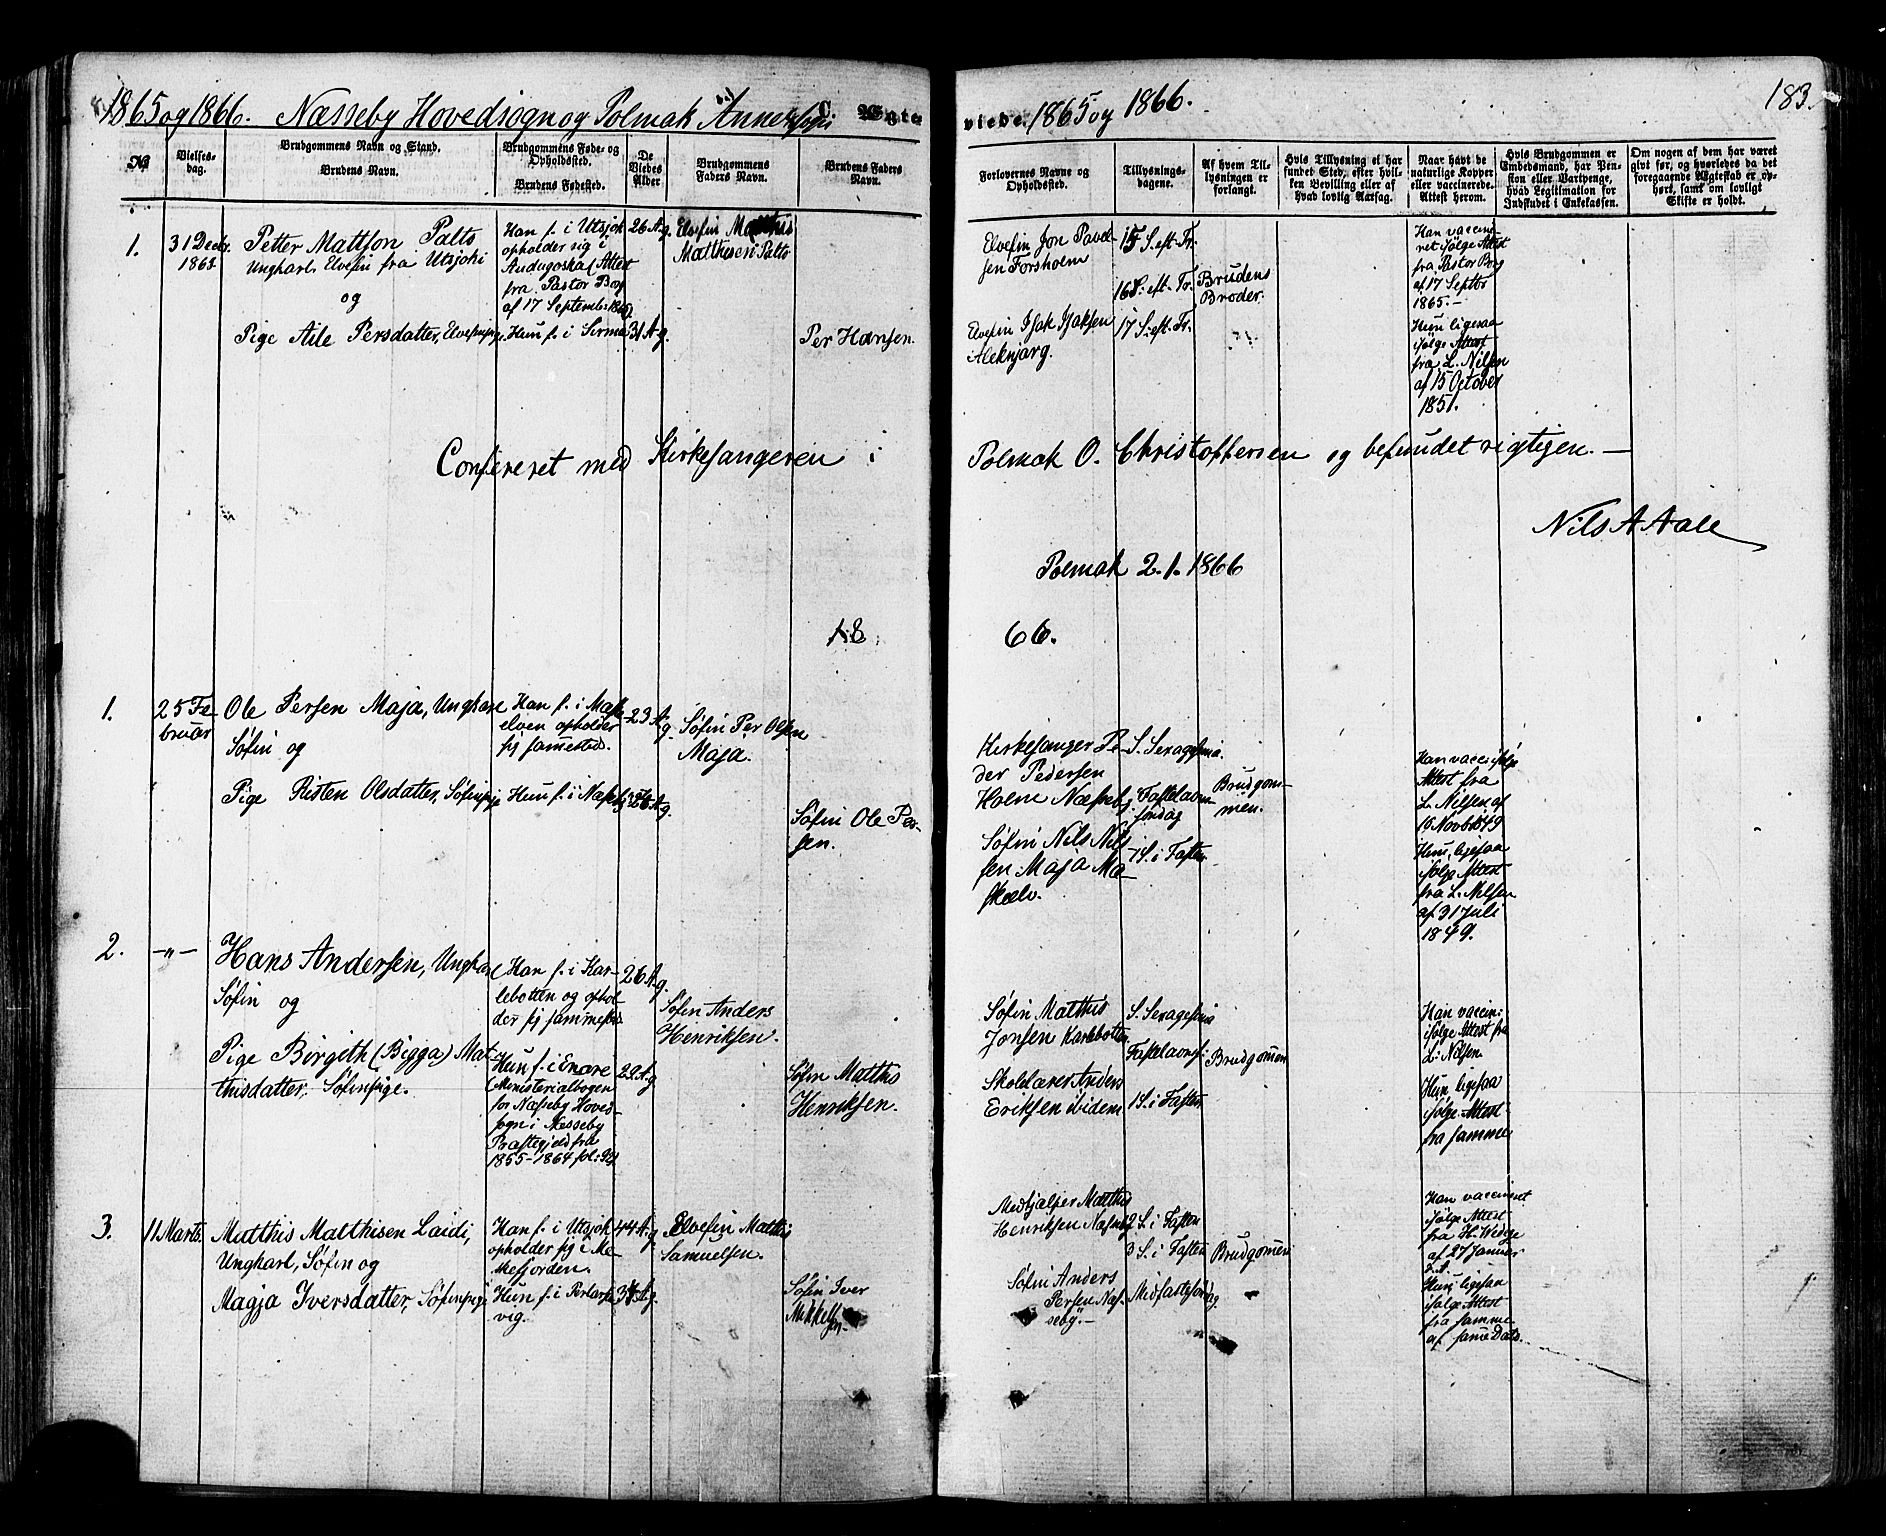 1865 og 1866. Næsseby Hovedsogn og Polmak Annexsogn Ægte
No
Vielses-
dag.
Brudgommens Navn og Stand.
Brudens Navn.
Brudgommens Føde- og
Opholdssted.
Brudens Fødested.
De
Viedes
Alder
Brudgommens
Faders Navn.
Brudens Faders
Navn.
1.
31 Decbr.
1865
Petter Mattson Palto
Ungkarl, Elvefin fra Utsjoki
og
Pige Aile Persdatter, Elvefinpige.
Han f. i Utsjok
opholder sig i
Audugoska (Attest
fra Pastor Borg
af 17 September 1865)
Hun f. i Sirma
26 A. g.
31 A. g.
Elvefin Matthis
Matthisen Palto
Per Hansen.
Confereret med Kirkesangeren i
18
1.
25 Fe-
bruar
Ole Persen Maja, Ungkarl
Søfin og
Pige Risten Olsdatter, Søfinpige
Han f. i Mask-
elven opholder
sig sammested.
Hun f. i Næsseby
23 A. g.
Søfin Per Olsen
Maja.
Søfin Ole Per-
sen.
2.
-"-
Hans Andersen, Ungkarl
Søfin og
Pige Börgith (Bigga) Mat-
thisdatter, Søfinpige.
Han f. i Kar-
lebotten og ophol-
der sig sammested
Hun f. i Enare
(Ministerialbogen
for Næsseby Hoved-
sogn i Nesseby
Præstegjeld fra
1855-1864 fol:
26 A. g.
Søfin Anders
Henriksen.
Søfin Matthis
Henriksen.
3.
11 Marts.
Matthis Matthisen Laidi,
Ungkarl, Søfin og
Magja Iversdatter, Søfinpige
Han f. i Utsjok
opholder sig i Me-
skefjorden.
Hun f. i
vig.
44 A. g.
Elvefin Matthis
Samuelsen.
Søfin Iver
Mikkelsen
viede. 1865 og 1866.
183.
Forlovernes Navne og
Opholdssted.
Tillysnings-
dagene.
Af hvem Til-
lysningen er
forlangt.
Hvis Tillysning ei har
fundet Sted, efter hvil-
ken Bevilling eller af
hvad lovlig Aarsag.
Naar havt de
naturlige Kopper
eller vaccinerede.
Attest herom.
Hvis Brudgommen er
Embedsmand, har Pen-
sion eller Vartpenge,
hvad Legitimation for
Indskudet i Enkekassen.
Om nogen af dem har været
givt før, og hvorledes da det
foregaaende Ægteskab er op-
hørt, samt om lovligt
Skifte er holdt.
Elvefin Jon Pavel-
sen Forsholm
Elvefin Isak Isaksen
Aleknjarg.
15 S. eft. Tr.
16 S. eft. Tr.
17 S. eft. Tr.
Brudens
Broder.
Han vaccine-
ret ifølge Attest
fra Pastor Borg
af 17 Septbr
1865.-
Hun ligesaa
ifølge Attest
fra L. Nilsen
af 15 October
1851.
Polmak O. Christophersen og befundet rigtigen. —
Nils A Aall
Polmak 2.1.1866
66.
Kirkesanger Pe-
der Pedersen
Holm Næsseby.
Søfin Nils Nils
sen Maja Ma-
skelv.
S. Sexagesima.
Fastelavns
søndag
1 S. i Fasten
Brudgom-
men.
Han vacc. ifølge
Attest fra
L. Nilsen af
15 Novb. 1849
Hun, ligesaa
ifølge Attest
fra L. Nilsen
af 31 Juli
1849.
Søfin Matthis
Jonsen Karlebotten
Skolelærer Anders
Eriksen ibidem
S. Sexagesima
Fastelavns:
1 S. i Fasten
Brudgomen
Han vaccin:
ifølge Attest fra
L: Nilsen.
Hun, ligesaa
ifølge Attest
fra samme
Medhjælper Matthis
Henriksen Næsseby
Søfin Anders
Persen Næs-
seby.-
2 S. i Fasten
3 S. i Fasten
Midfastesøndag.
Brudgomen
Han vaccineret
ifølge Attest
fra H. Wedge
af 27 Januar
Hun, ligesaa
ifølge Attest
fra samme
af same Dato.